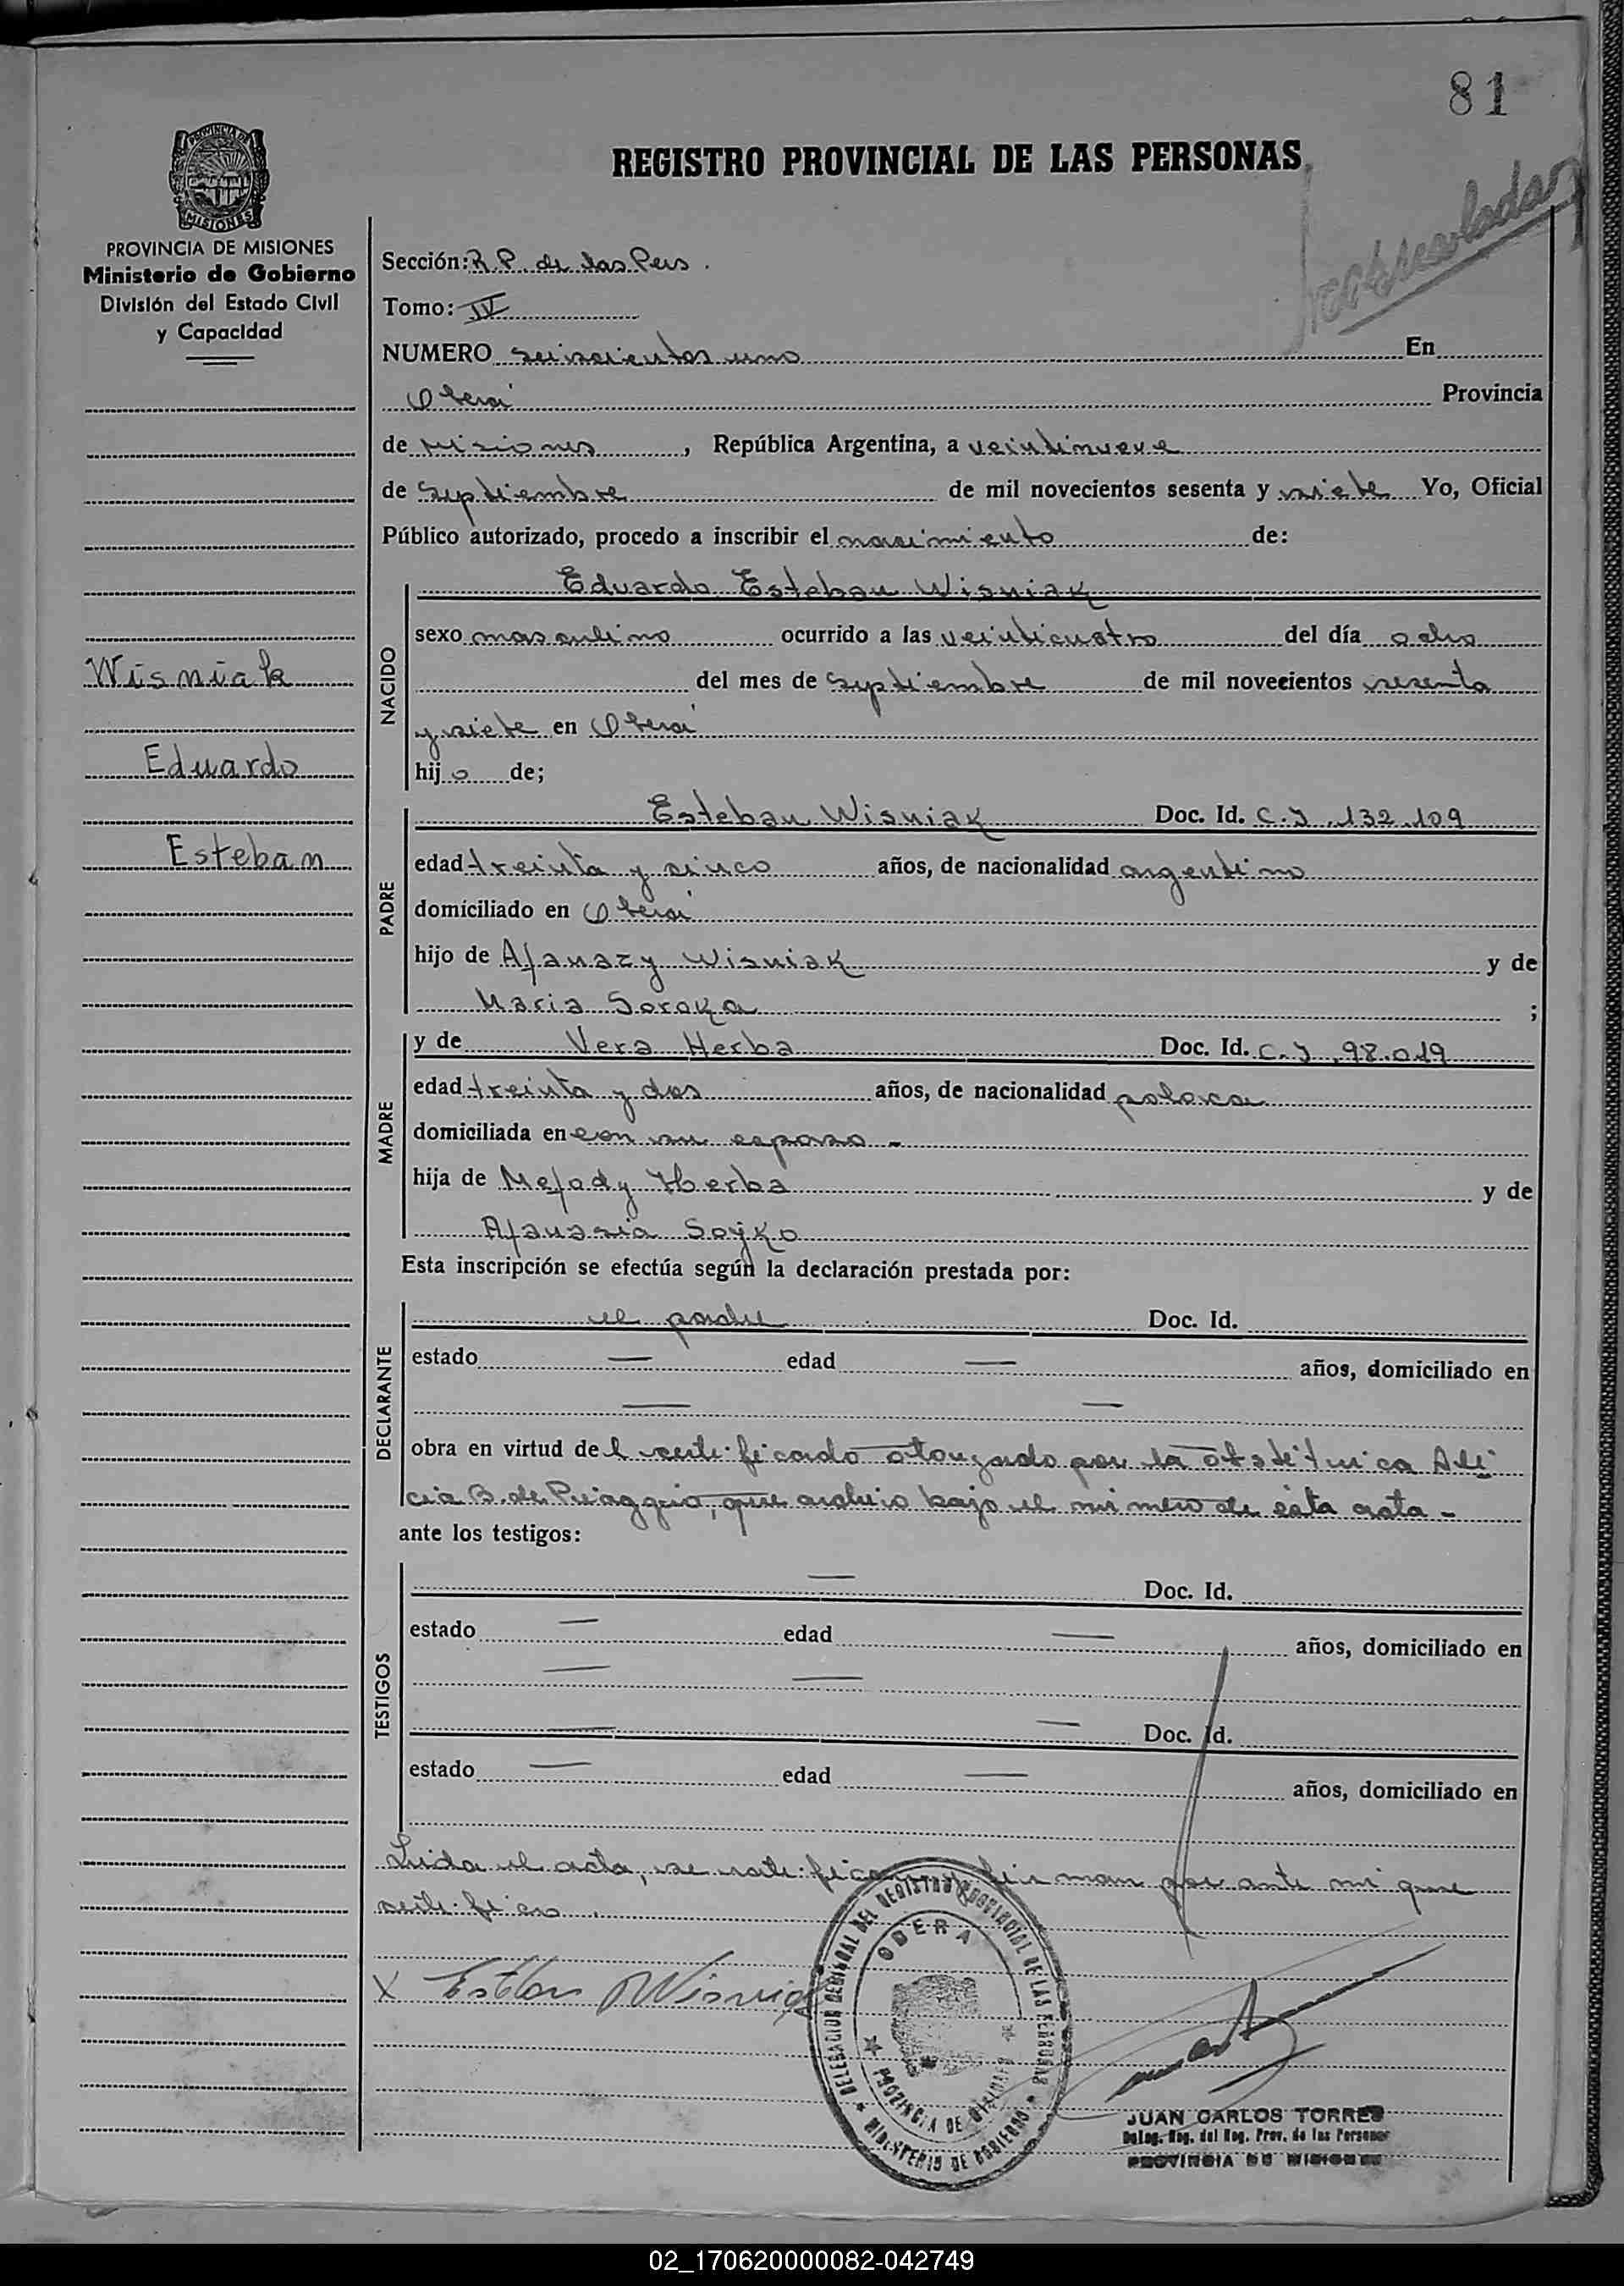 81
REGISTRO PROVINCIAL DE LAS PERSONAS
PROVINCIA DE MISIONES
PROVINCIA DE MISIONES
Ministerio de Gobierno
División del Estado Civil
y Capacidad
Wisniak
Eduardo
Esteban
Sección: R. P. de las Pers.
Tomo: IV
NUMERO seiscientos uno En
Oberá Provincia
de Misiones, República Argentina, a veintinueve
de Septiembre de mil novecientos sesenta y siete Yo, Oficial
Público autorizado, procedo a inscribir el nacimiento de:
NACIDO
Eduardo Esteban Wisniak
sexo masculino ocurrido a las veinticuatro del día ocho
del mes de Septiembre de mil novecientos sesenta
y siete en Oberá
hijo de;
PADRE
Esteban Wisniak Doc. Id. C. I. 132.109
edad treinta y cinco años, de nacionalidad argentino
domiciliado en Oberá
hijo de Afanazy Wisniak y de
Maria Soroka ;
MADRE
y de Vera Herba Doc. Id. C. I. 98.019
edad treinta y dos años, de nacionalidad polaca
domiciliada en con su esposo -
hija de Mefody Herba y de
Afanasia Soyko
Esta inscripción se efectúa según la declaración prestada por:
DECLARANTE
el padre Doc. Id.
estado — edad — años, domiciliado en
— —
obra en virtud del certificado otorgado por la obstétrica Ali
cia B. de Piaggio, que archivo bajo el número de ésta acta -
ante los testigos:
TESTIGOS
— Doc. Id.
estado — edad — años, domiciliado en
— —
— — Doc. Id.
estado — edad — años, domiciliado en
Leida el acta, se ratifican y firman por ante mi que
certifico.
X Esteban Wisniak
DELEGACION REGIONAL DEL REGISTRO PROVINCIAL DE LAS PERSONAS
OBERA
PROVINCIA DE MISIONES
MINISTERIO DE GOBIERNO
JUAN CARLOS TORRES
Deleg. Reg. del Reg. Prov. de las Personas
PROVINCIA DE MISIONES
02_170620000082-042749